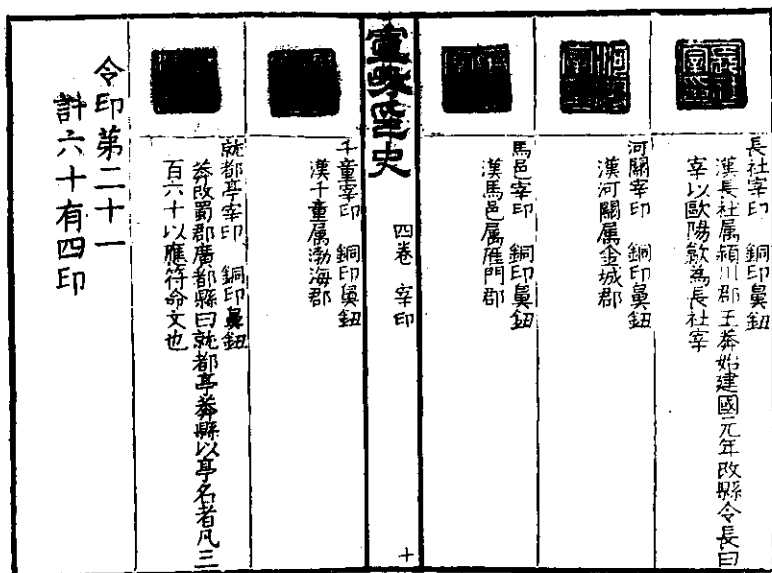 長社宰印　銅印鼻鈕
漢長社属潁川郡王莽始建國元年改縣令長曰
宰以歐陽歙為長社宰
河關宰印　銅印鼻鈕
漢河關属金城郡
馬邑宰印　銅印鼻鈕
漢馬邑属雁門郡
四卷　宰印
十
千童宰印　銅印鼻鈕
漢千童属渤海郡
就都亭宰印　銅印鼻鈕
莽改蜀郡廣都縣曰就都亭莽縣以亭名者凡三
百六十以應符命文也
令印第二十一
計六十有四印